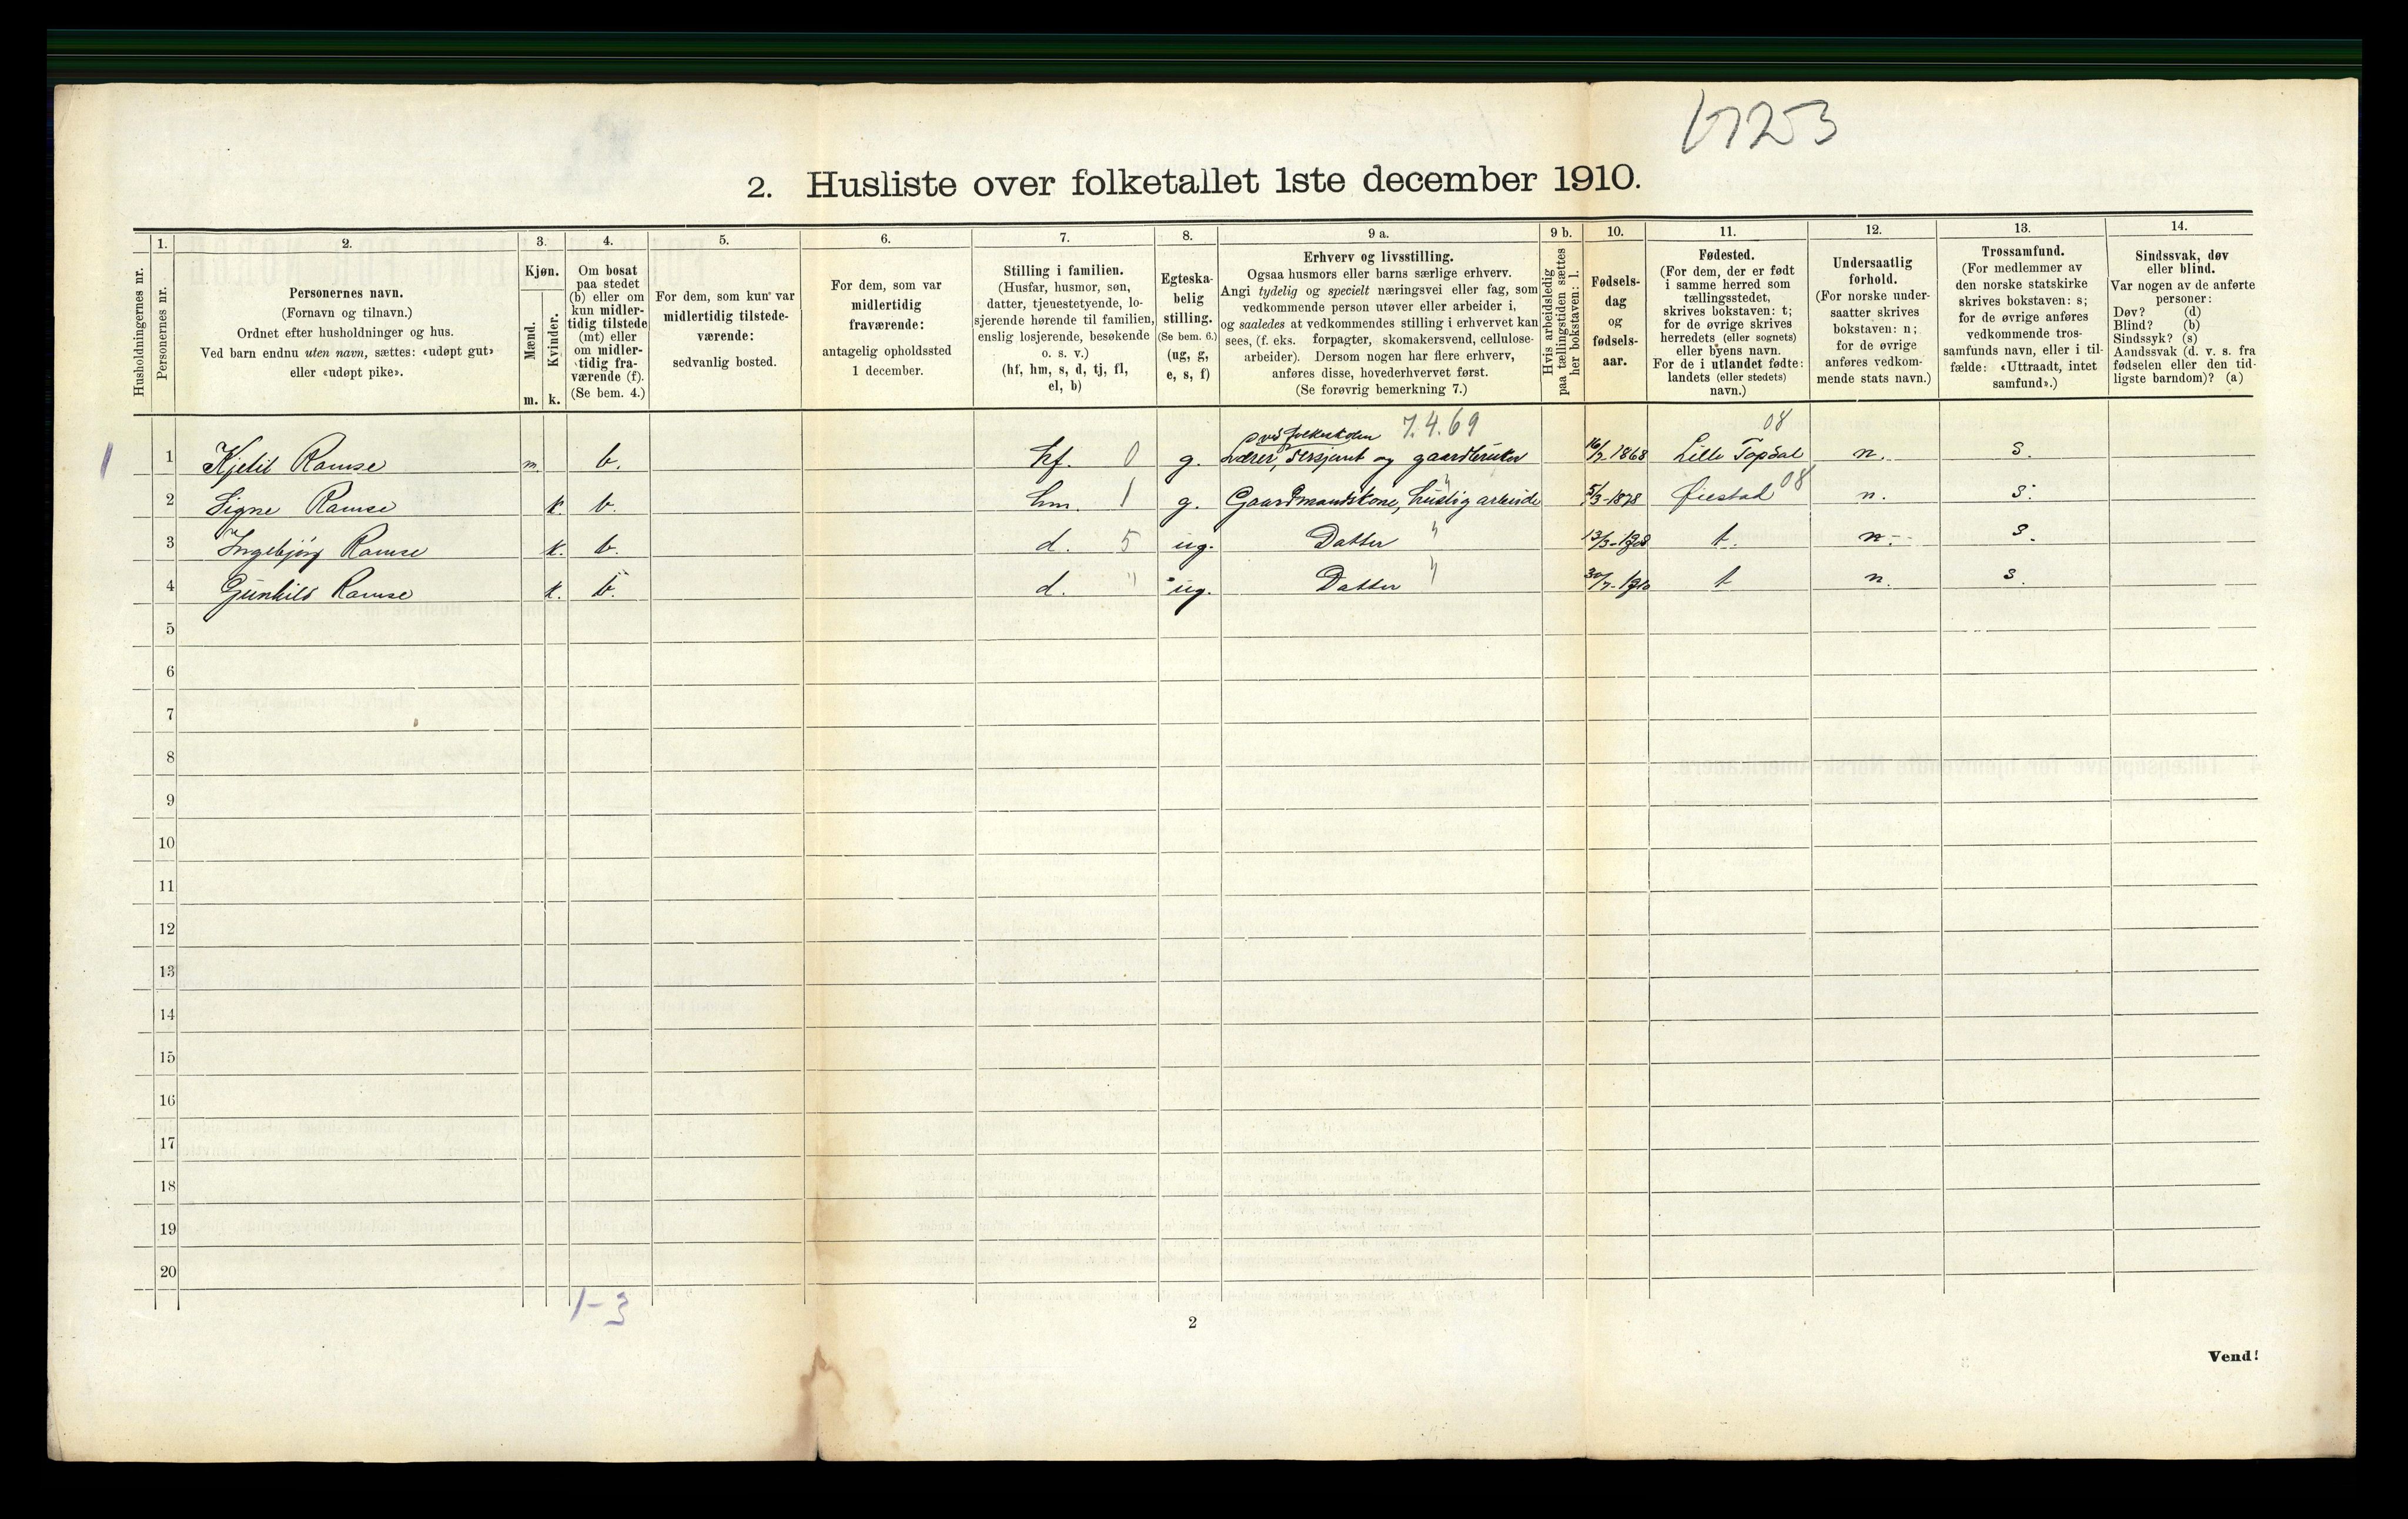 1723
2. Husliste over folketallet 1ste december 1910.
Husholdningernes nr.
1.
Personernes nr.
2.
Personernes navn.
(Fornavn og tilnavn.)
Ordnet efter husholdninger og hus.
Ved barn endnu uten navn, sættes: «udøpt gut»
eller «udøpt pike».
3.
Kjøn.
Mænd.
Kvinder.
m. k.
4.
Om bosat
paa stedet
(b) eller om
kun midler-
tidig tilstede
(mt) eller
om midler-
tidig fra-
værende (f).
(Se bem. 4.)
5.
For dem, som kun var
midlertidig tilstede-
værende:
sedvanlig bosted.
6.
For dem, som var
midlertidig
fraværende:
antagelig opholdssted
1 december.
7.
Stilling i familien.
(Husfar, husmor, søn,
datter, tjenestetyende, lo-
sjerende hørende til familien,
enslig losjerende, besøkende
o. s. v.)
(hf, hm, s, d, tj, fl,
el, b)
8.
Egteska-
belig
stilling.
(Se bem. 6.)
(ug, g,
e, s, f)
9 a.
Erhverv og livsstilling.
Ogsaa husmors eller barns særlige erhverv.
Angi tydelig og specielt næringsvei eller fag, som
vedkommende person utøver eller arbeider i,
og saaledes at vedkommendes stilling i erhvervet kan
sees, (f. eks. forpagter, skomakersvend, cellulose-
arbeider). Dersom nogen har flere erhverv,
anføres disse, hovederhvervet først.
(Se forøvrig bemerkning 7.)
9 b.
Hvis arbeidsledig
paa tællingstiden sættes
her bokstaven: l.
10.
Fødsels-
dag
og
fødsels-
aar.
11.
Fødested.
(For dem, der er født
i samme herred som
tællingsstedet,
skrives bokstaven: t;
for de øvrige skrives
herredets (eller sognets)
eller byens navn.
For de i utlandet fødte:
landets (eller stedets)
navn.)
12.
Undersaatlig
forhold.
(For norske under-
saatter skrives
bokstaven: n;
for de øvrige
anføres vedkom-
mende stats navn.)
13.
Trossamfund.
(For medlemmer av
den norske statskirke
skrives bokstaven: s;
for de øvrige anføres
vedkommende tros-
samfunds navn, eller i til-
fælde: «Uttraadt, intet
samfund».)
14.
Sindssvak, døv
eller blind.
Var nogen av de anførte
personer:
Døv? (d)
Blind? (b)
Sindssyk? (s)
Aandssvak (d. v. s. fra
fødselen eller den tid-
ligste barndom)? (a)
ved folkeskolen 7.4.69 08
1 1 Kjetil Ramse m. b. hf. 0 g. Lærer, Sersjant og gaardbruker 16/7-1868 Lille Topdal n. s.
2 Signe Ramse k. b. hm. 1 g. Gaardmandskone, huslig arbeide 5/3-1878 Øiestad 08 n. s.
3 Ingebjørg Ramse k. b. d. 5 ug. Datter " 13/3-1908 t. n. s.
4 Gunhild Ramse k. b. d. " ug. Datter " 30/7-1910 t n. s.
5
6
7
8
9
10
11
12
13
14
15
16
17
18
19
20
1-3
2
Vend!